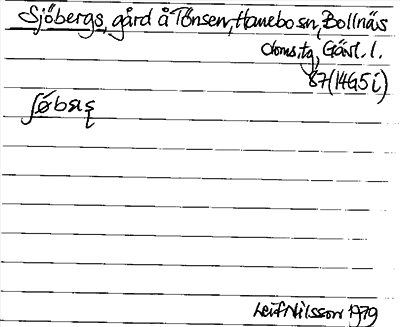 Sjöbergs, gård å Tönsen, Hanebo sn, Bollnäs
doms.tg, Gävl. l.
87 (14G5i)
Leif Nilsson 1979